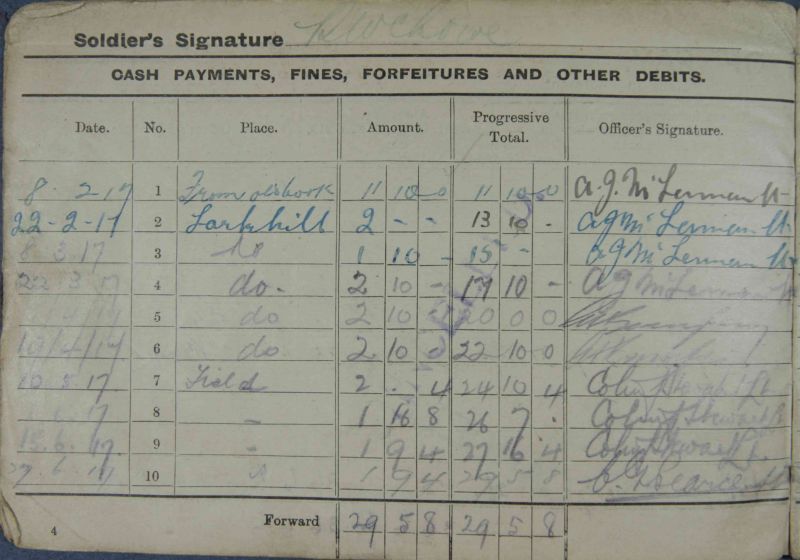 Soldier's Signature
CASH PAYMENTS, FINES, FORFEITURES AND OTHER DEBITS.
Date. No. Place. Amount. Progressive Total. Officer's Signature.
8 2-17 1 From old book 11 10 0 11 10 0 A.J. McLennan Lt
22-2-17 2 Larkhill 2 - - 13 10 - A J McLennan Lt
8 3 17 3 do 1 10 - 15 - A J McLennan Lt
22 3 17 4 do- 2 10 - 17 10 - A J McLennan Lt
5 do 2 10 20 0 0
6 do 2 10 0 22 10 0
10.5.17 7 Field 2 . 4 24 10 4 Colin Stewart Lt
6.17 8 - 1 16 8 26 7 . Colin Stewart Lt
15.6.17. 9 - 1 9 4 27 16 4 Colin Stewart Lt.
27.6.17 10 1 9 4 29 5 8
Forward 29 5 8 29 5 8
4